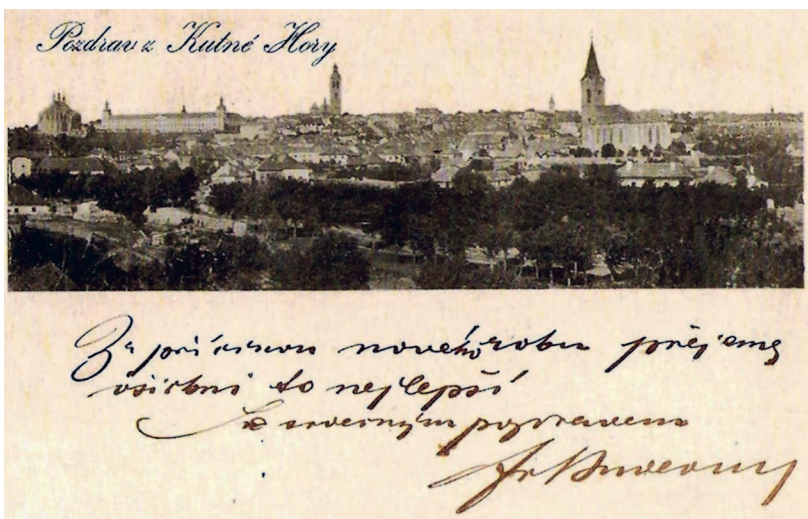 Pozdrav z Kutné Hory
Za příčinou nového roku přejeme
všichni to nejlepší
Se srdečným pozdravem